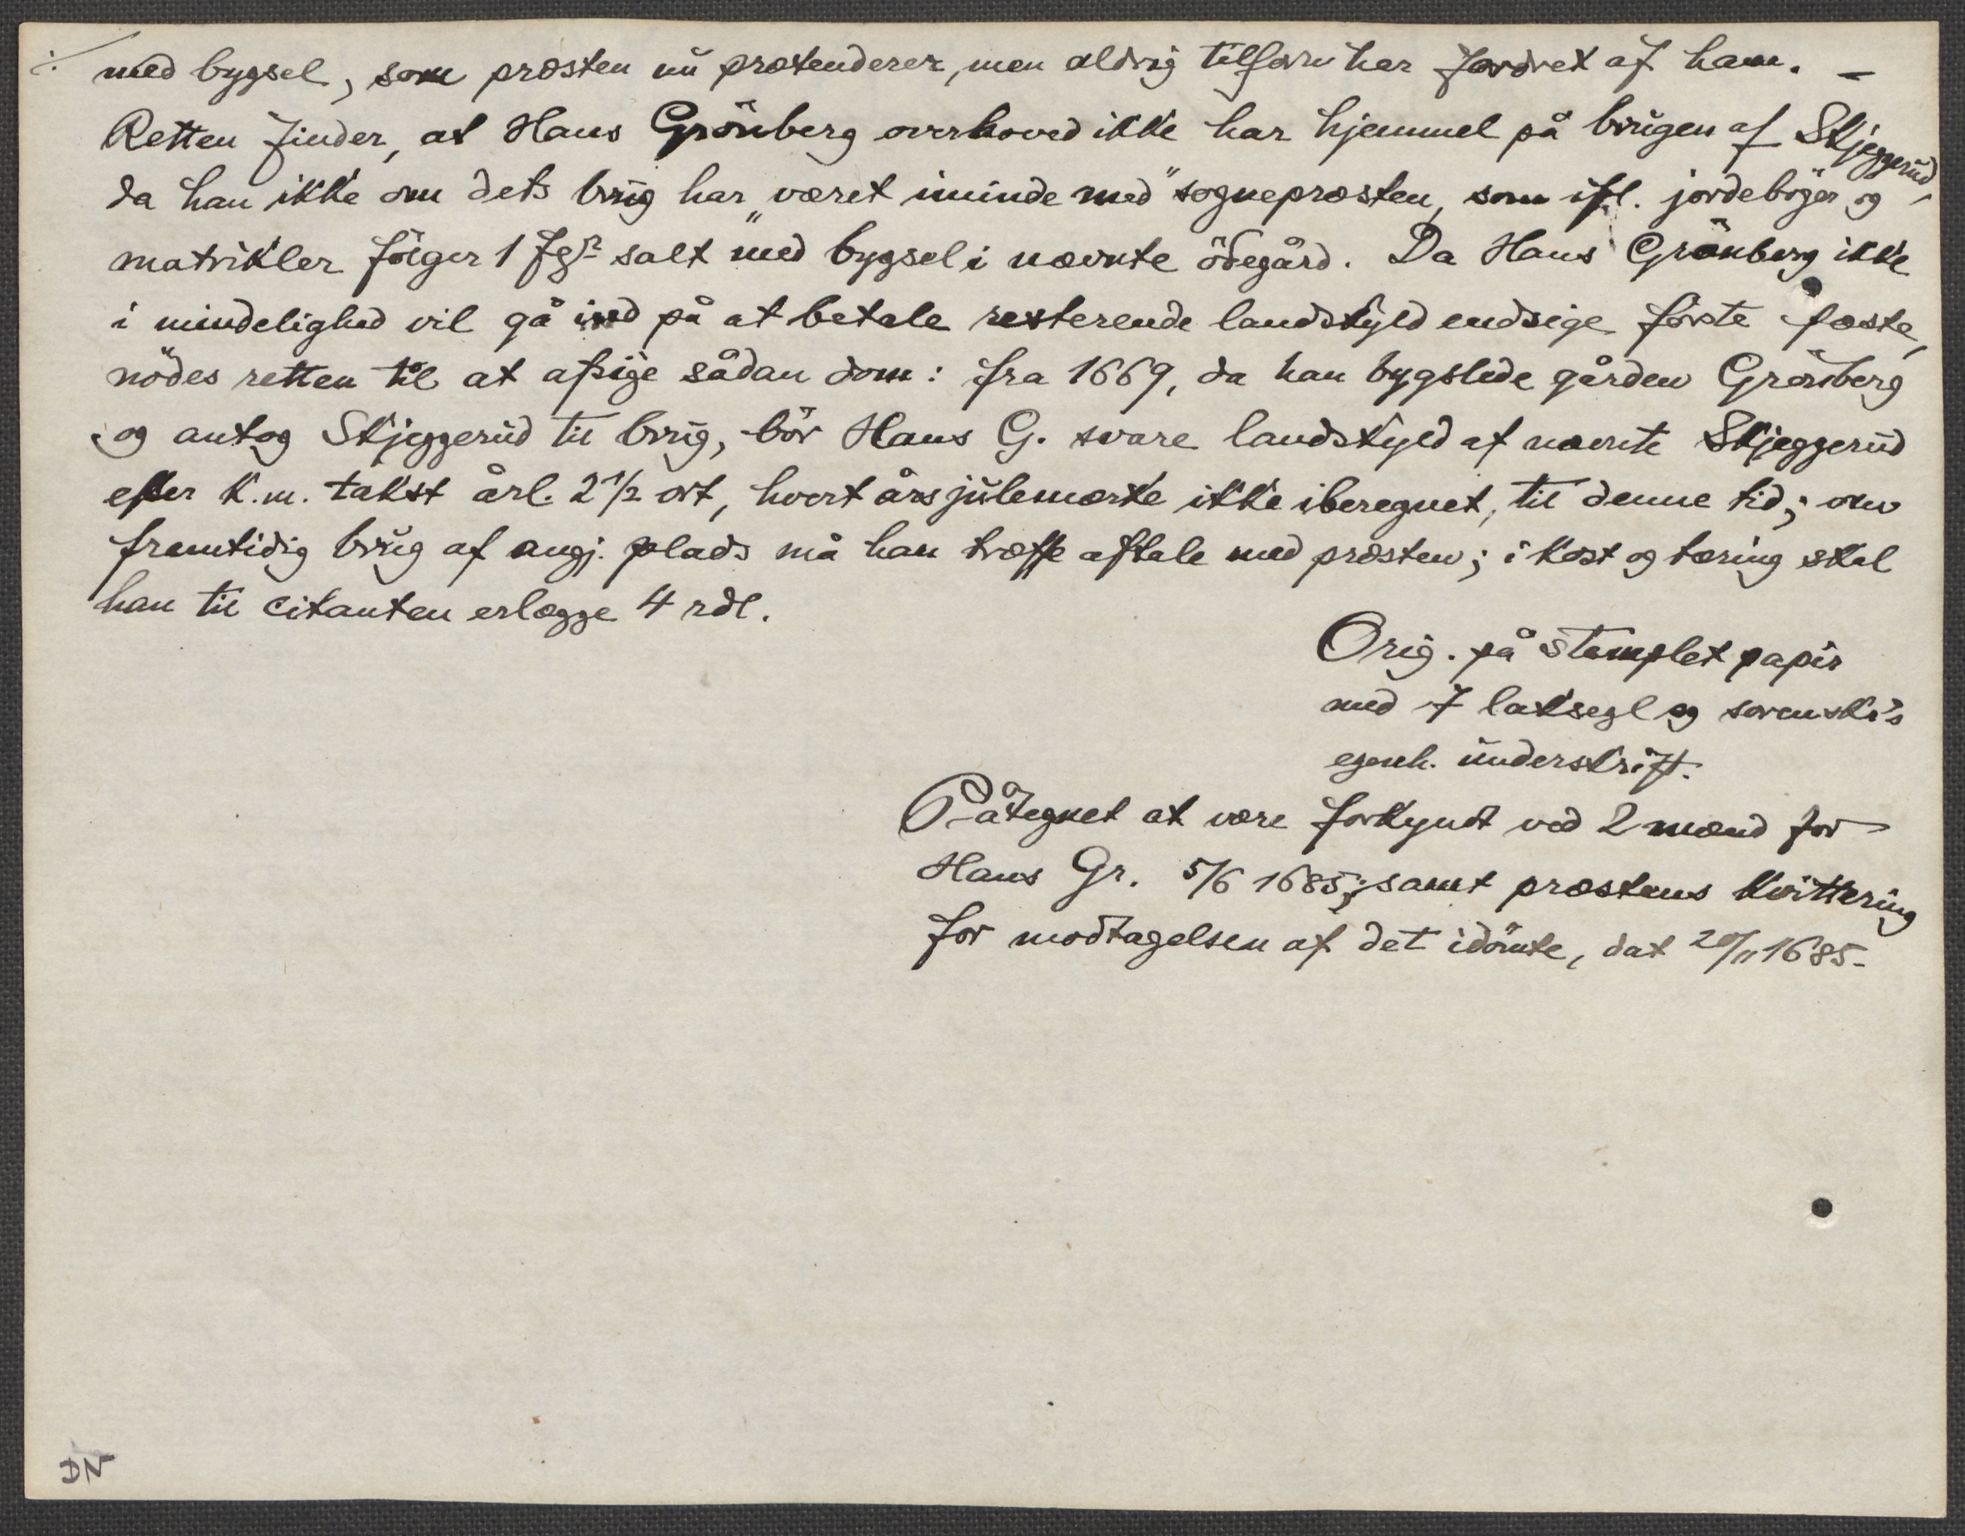 ./. med bygsel, som præsten nu prætenderer, men aldrig tilforn har fordret af ham. –
Retten finder, at Hans Grönberg overhoved ikke har hjemmel på brugen af Skjeggerud,
da han ikke om dets brug har "været iminde med" sognepræsten, som ifl. jordebøger og
matrikler følger 1 fgr salt med bygsel i nævnte ödegård. Da Hans Grönberg ikke
i mindelighed vil gå ind på at betale resterende landskyld endsige første fæste,
nödes retten til at afsige sådan dom: fra 1669, da han bygslede gården Grönberg
og antog Skjeggerud til brug, bör Hans G. svare landskyld af nævnte Skjeggerud
efter K.m. takst årl. 2 1/2 ort, hvert års julemærke ikke iberegnet, til denne tid; om
fremtidig brug af angj. plads må han træffe aftale med præsten; i kost og tæring skal
han til citanten erlægge 4 rdl.
Orig. på stemplet papir
med 7 laksegl og sorenskr's
egenh. underskrift.
Påtegnet at være forkyndt ved 2 mænd for
Hans Gr. 5/6 1685; samt præstens kvittering
for modtagelsen af det idömte, dat 20/11 1685.
DN